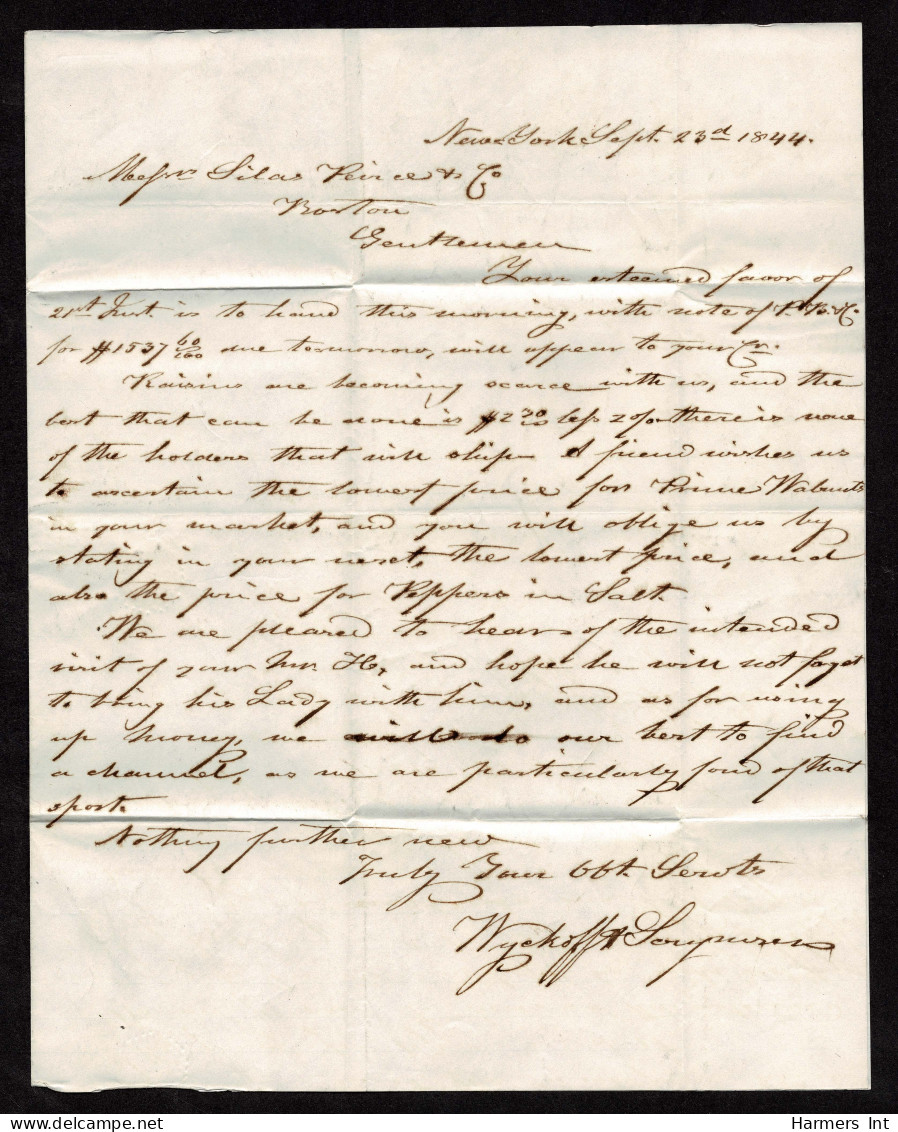 New York Sept. 23d 1844.
Messrs Silas Peirce & Co
Boston
Gentlemen
Your esteemed favor of
21st Inst. is to hand this morning, with note of & Co.
for $1537 60/100 due tomorrow, will appear to your Cr.
Raisins are becoming scarce with us, and the
best that can be done is $2 less 2 there is none
of the holders that will ship A friend wishes us
to ascertain the lowest price for Prime Walnuts
in your market, and you will oblige us by
stating in your next, the lowest price, and
also the price for Peppers in Salt.
We are pleased to hear of the intended
visit of your Mr. H, and hope he will not forget
to bring his Lady with him, and as for using
up money, we will do our best to find
a channel, as we are particularly fond of that
sport.
Nothing further new
Truly Your Obt. Servts
Wyckoff &
Harmers Int